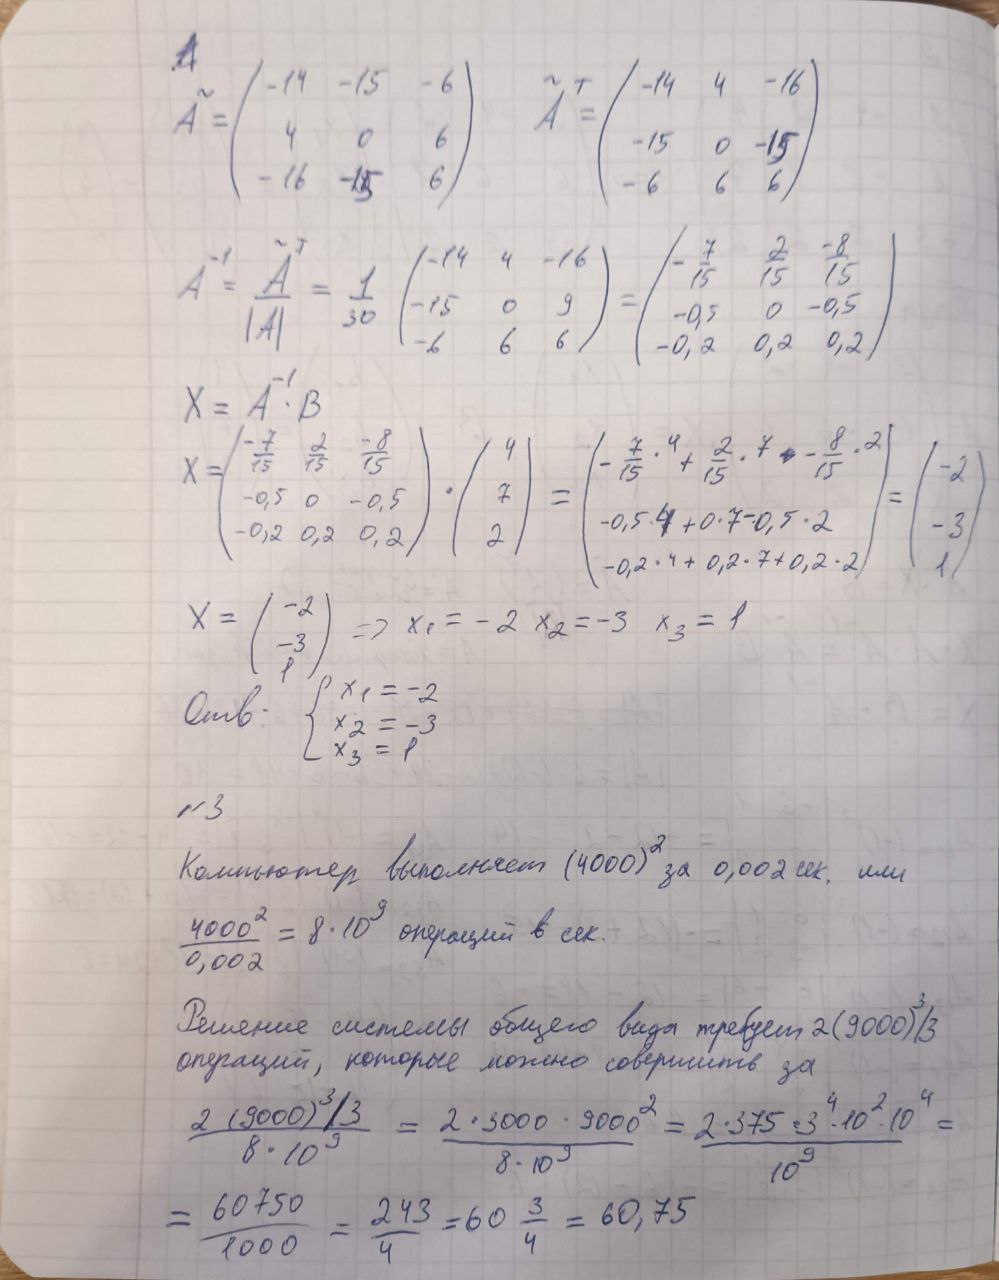 Ã = ( -14 -15 -6
4 0 6
-16 -15 6 )
Ã^T = ( -14 4 -16
-15 0 -15
-6 6 6 )
A^-1 = Ã^T / |A| = 1/30 ( -14 4 -16
-15 0 9
-6 6 6 ) = ( -7/15 2/15 -8/15
-0,5 0 -0,5
-0,2 0,2 0,2 )
X = A^-1 · B
X = ( -7/15 2/15 -8/15
-0,5 0 -0,5
-0,2 0,2 0,2 ) · ( 4
7
2 ) = ( -7/15 · 4 + 2/15 · 7 - 8/15 · 2
-0,5·4 + 0·7-0,5·2
-0,2·4 + 0,2·7+0,2·2 ) = ( -2
-3
1 )
X = ( -2
-3
1 ) => x1 = -2 x2 = -3 x3 = 1
Отв: { x1 = -2
x2 = -3
x3 = 1
№3
Компьютер выполняет (4000)^2 за 0,002 сек. или
4000^2 / 0,002 = 8·10^9 операций в сек.
Решение системы общего вида требует 2(9000)^3/3
операций, которые можно совершить за
2(9000)^3/3 / 8·10^9 = 2·3000·9000^2 / 8·10^9 = 2·375·3^4·10^2·10^4 / 10^9 =
= 60750/1000 = 243/4 = 60 3/4 = 60,75